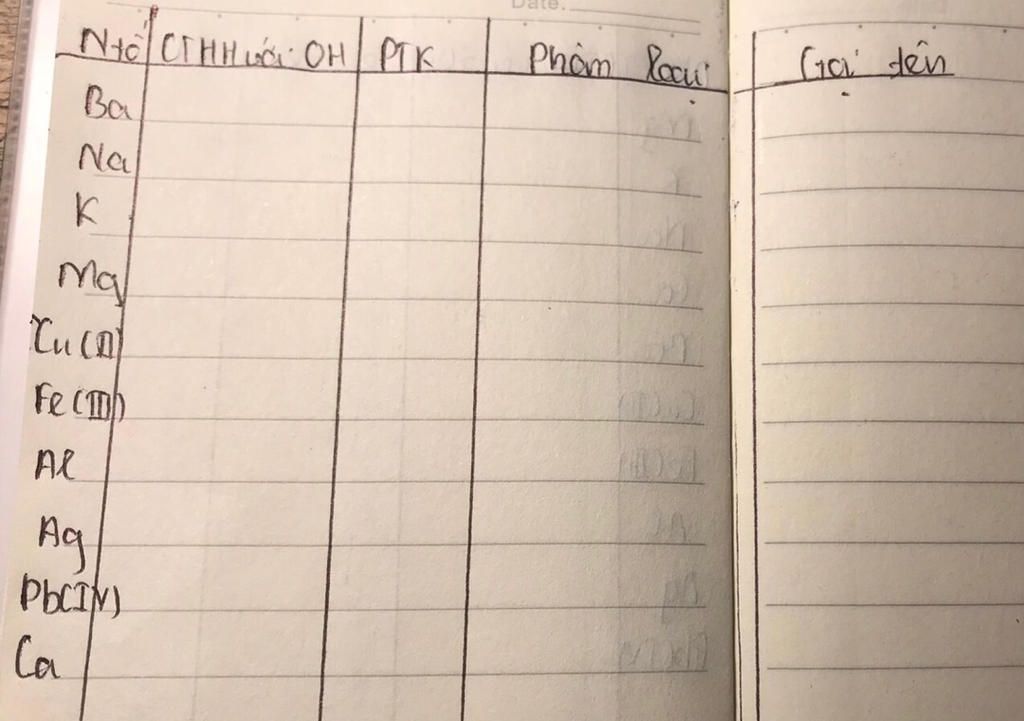 Date:
N tố CTHH với OH PTK Phân loại Gọi tên
Ba
Na
K
Mg
Cu(II)
Fe(III)
Al
Ag
Pb(IV)
Ca